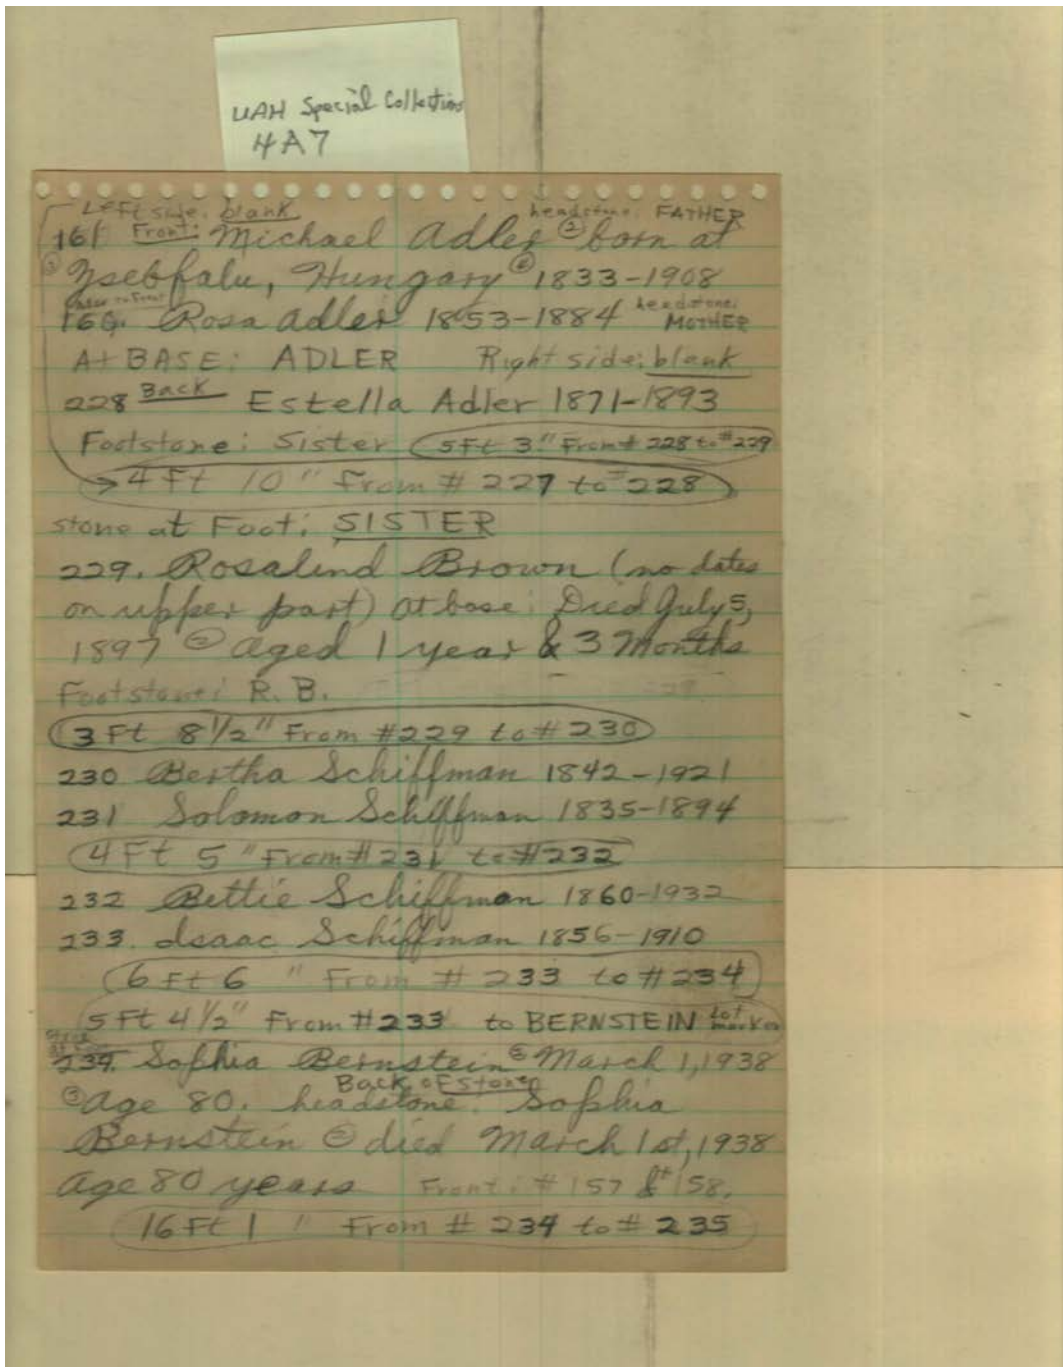 UAH Special Collections
4A7
Left side: blank headstone: FATHER
161 Front: Michael Adler ② born at
③ Zsebfalu, Hungary ④ 1833-1908
160. Rosa Adler 1853-1884 headstone: MOTHER
At BASE: ADLER Right side: blank
228 Back Estella Adler 1871-1893
Footstone: Sister 5Ft 3" From # 228 to #229
4 Ft 10" From # 227 to #228
stone at Foot: SISTER
229. Rosalind Brown (no dates
on upper part) at base: Died July 5,
1897 ② aged 1 year & 3 Months
Footstone: R. B.
3 Ft 8 1/2" From #229 to #230
230 Bertha Schiffman 1842-1921
231 Solomon Schiffman 1835-1894
4 Ft 5 " From #231 to #232
232 Bettie Schiffman 1860-1932
233. Isaac Schiffman 1856-1910
6 Ft 6 " From # 233 to # 234
5 Ft 4 1/2" From #233 to BERNSTEIN Lot marker
234. Sophia Bernstein ② March 1, 1938
③ age 80. headstone: Back of stone Sophia
Bernstein ② died March 1st, 1938
age 80 years Front: #157 & #158.
16 Ft 1 " From # 234 to # 235